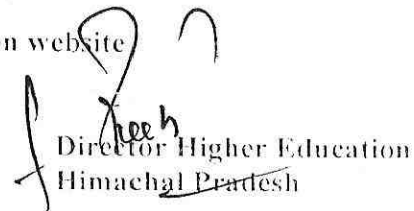 n website
Director Higher Education
Himachal Pradesh